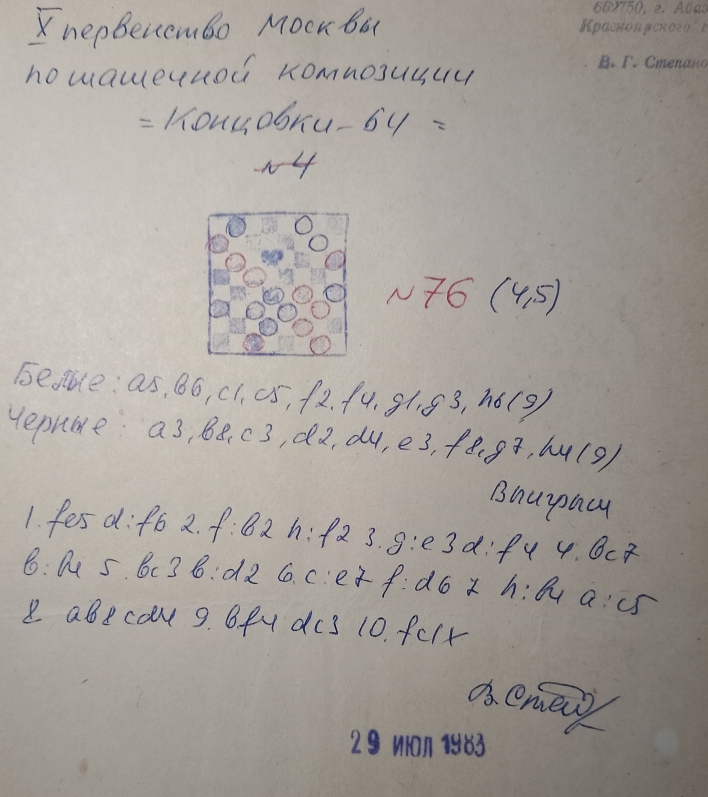 662750, г. Абаз
Красноярского г
В. Г. Степано
X первенство Москвы
по шашечной композиции
= Концовки – 64 =
№4
№76 (4,5)
Белые: a5, b6, c1, c5, f2, f4, g1, g3, h6 (9)
Черные: a3, b8, c3, d2, d4, e3, f8, g7, h4 (9)
Выигрыш
1. fe5 d:f6 2. f:b2 h:f2 3. g:e3 d:f4 4. bc7
b:b4 5. bc3 b:d2 6. c:e7 f:d6 7 h:b4 a:c5
8. ab8 cd4 9. bf4 dc3 10. fc1x
29 ИЮЛ 1983